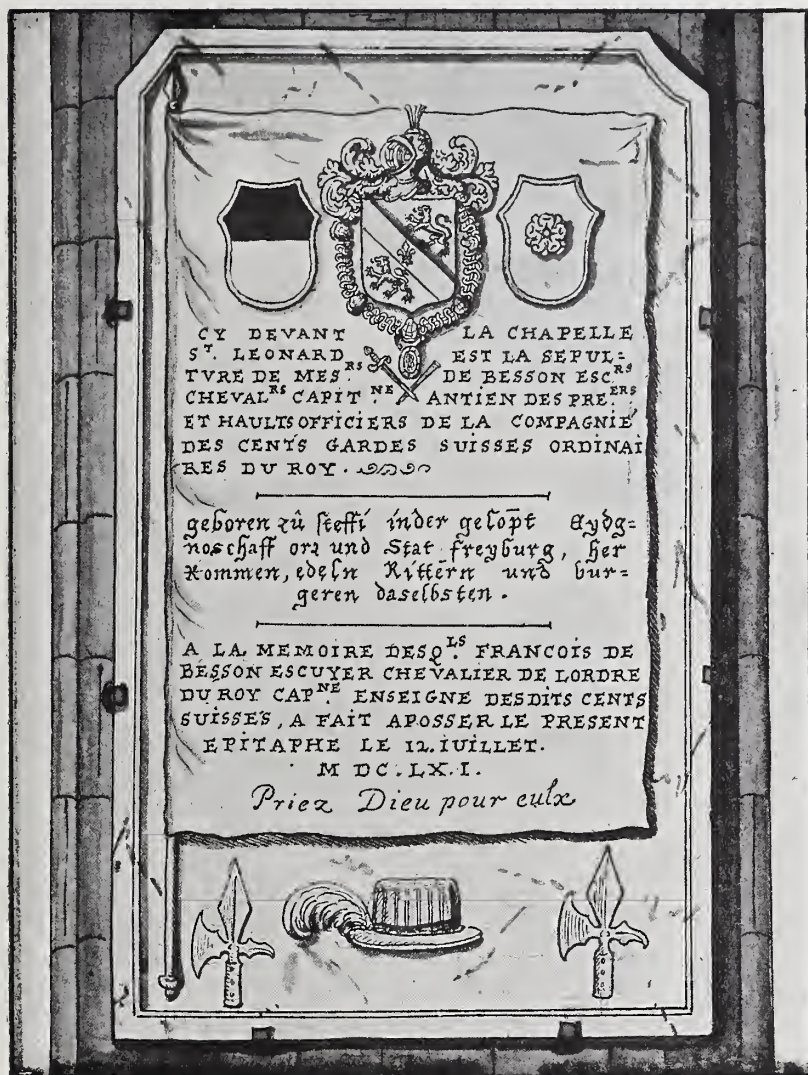 CY DEVANT LA CHAPELLE
S^T. LEONARD EST LA SEPUL=
TVRE DE MES^RS. DE BESSON ESC^RS
CHEVAL^RS CAPIT^NE. ANTIEN DES PRE^ERS
ET HAULTS OFFICIERS DE LA COMPAGNIE
DES CENTS GARDES SUISSES ORDINAI
RES DU ROY.
geboren zů steffi inder gelopt Eydg=
noschaff orz und Stat freyburg, her
kommen, edeln Rittern und bur=
geren daselbsten.
A LA MEMOIRE DESQ^LS. FRANCOIS DE
BESSON ESCUYER CHEVALIER DE LORDRE
DU ROY CAP^NE. ENSEIGNE DESDITS CENTS
SUISSES, A FAIT APOSSER LE PRESENT
EPITAPHE LE 12. IUILLET.
M DC. LX. I.
Priez Dieu pour eulx